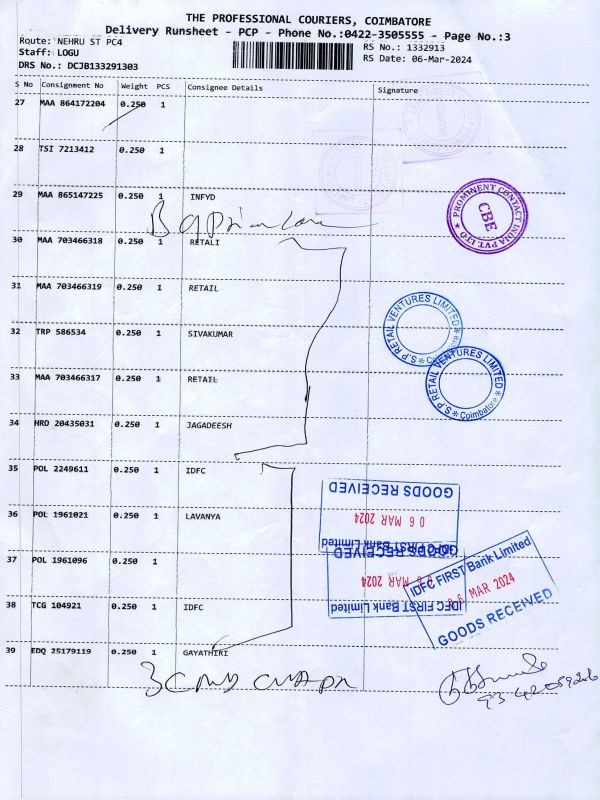 THE PROFESSIONAL COURIERS, COIMBATORE
Delivery Runsheet - PCP - Phone No.:0422-3505555 - Page No.:3
Route: NEHRU ST PC4
RS No.: 1332913
Staff: LOGU
RS Date: 06-Mar-2024
DRS No.: DCJB133291303
S No Consignment No Weight PCS Consignee Details Signature
27 MAA 864172204 0.250 1
28 TSI 7213412 0.250 1
29 MAA 865147225 0.250 1 INFYD
PROMINENT CONTACT INDIA PVT. LTD
CBE
30 MAA 703466318 0.250 1 RETALI
31 MAA 703466319 0.250 1 RETAIL
S.P RETAIL VENTURES LIMITED
Coimbatore
32 TRP 586534 0.250 1 SIVAKUMAR
33 MAA 703466317 0.250 1 RETAIL
S.P RETAIL VENTURES LIMITED
Coimbatore
34 HRD 20435031 0.250 1 JAGADEESH
35 POL 2249611 0.250 1 IDFC
GOODS RECEIVED
36 POL 1961021 0.250 1 LAVANYA
06 MAR 2024
Bank Limited
GOODS RECEIVED
37 POL 1961096 0.250 1
MAR 2024
IDFC FIRST Bank Limited
IDFC FIRST Bank Limited
06 MAR 2024
GOODS RECEIVED
38 TCG 104921 0.250 1 IDFC
39 EDQ 25179119 0.250 1 GAYATHIRI